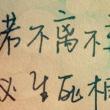 若不离不
必生死相